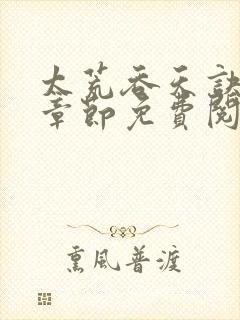 太荒吞天訣
章節免費閱
熏風普渡